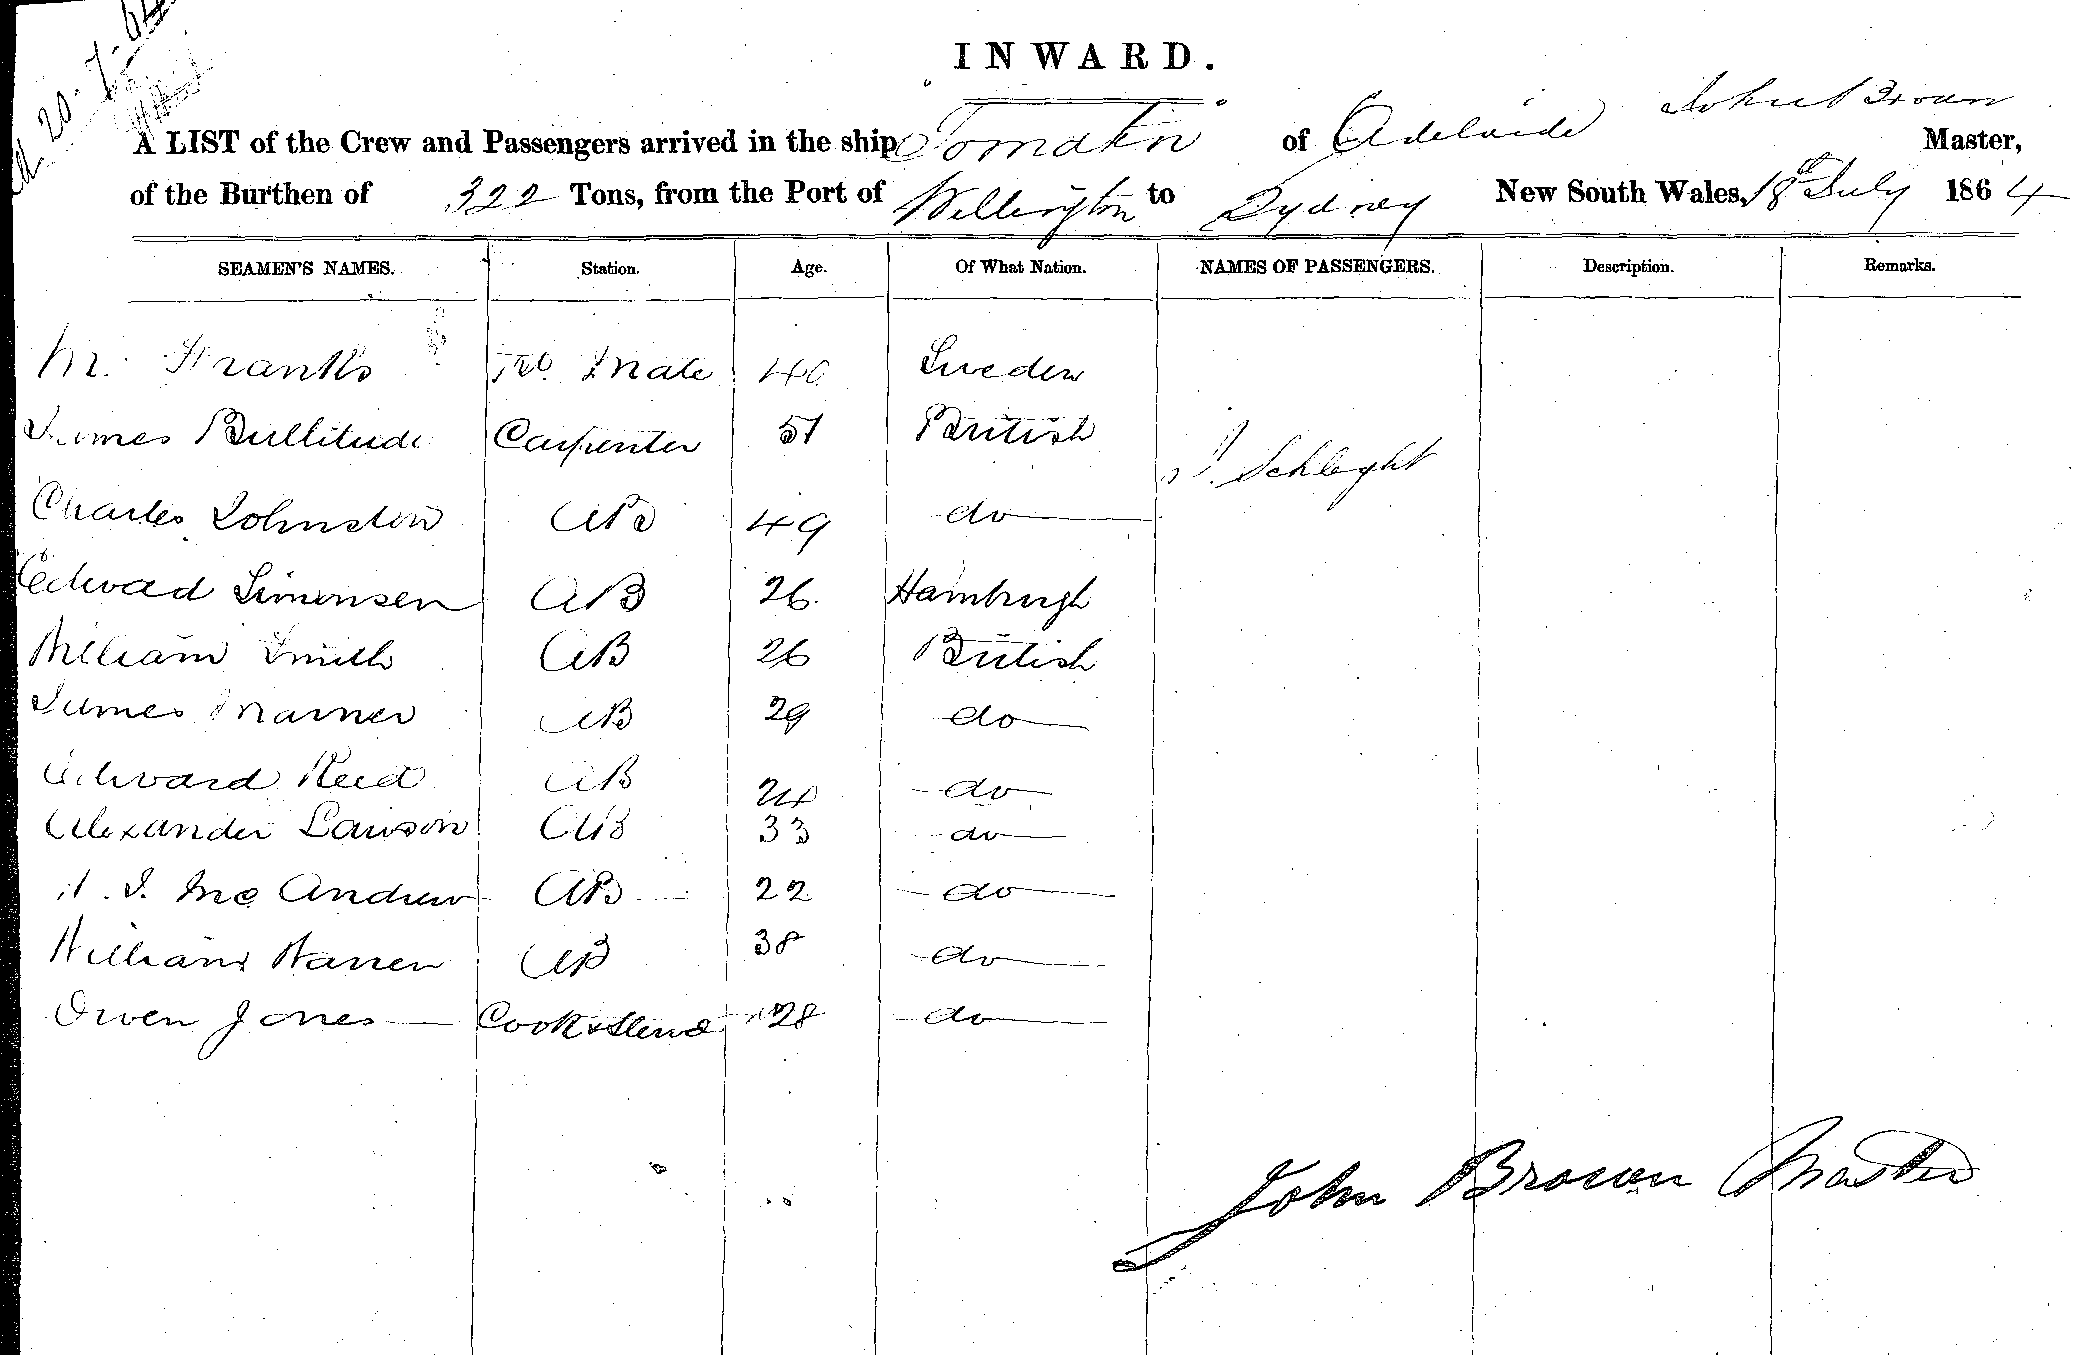 20.7.64
INWARD.
A LIST of the Crew and Passengers arrived in the ship Tomatin of Adelaide John Brown Master,
of the Burthen of 322 Tons, from the Port of Wellington to Sydney New South Wales, 18th July 1864
SEAMEN'S NAMES. Station. Age. Of What Nation. NAMES OF PASSENGERS. Description. Remarks.
M. Franks Mate 40 Sweden
James Bullitude Carpenter 51 British
Schleght
Charles Johnston AB 49 do
Edward Simonsen AB 26 Hamburgh
William Smith AB 26 British
James AB 29 do
Edward Reed AB 24 do
Alexander Lawson AB 33 do
J. Mc Andrew AB 22 do
William Warren AB 38 do
Owen Jones Cook & Stewd 28 do
John Brown Master